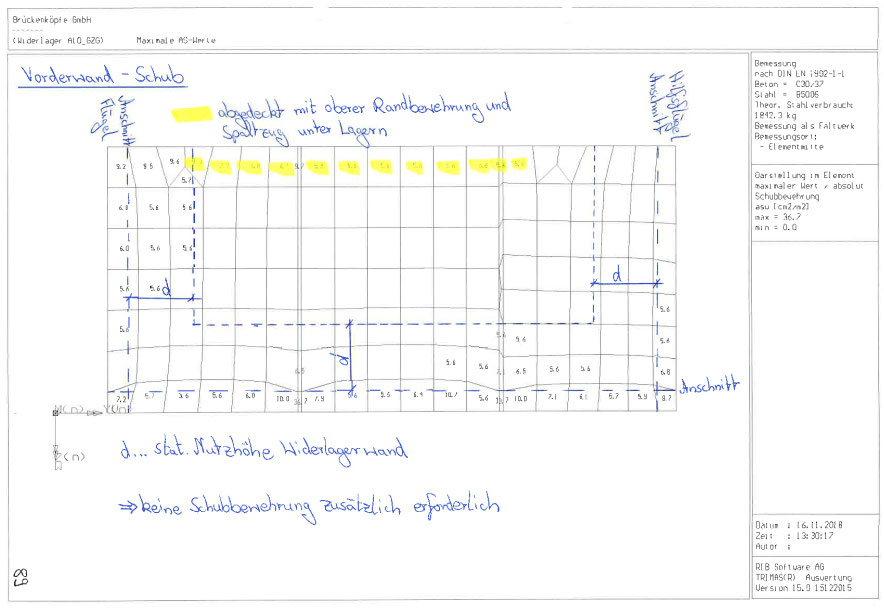 Brückenköpfe GmbH
(Widerlager ALO_GZG) Maximale AS-Werte
Vorderwand - Schub
abgedeckt mit oberer Randbewehrung und
Spaltzug unter Lagern
Flügel
Anschnitt
Hilfsflügel
Anschnitt
9.2 8.5 9.6
5.7
6.0 5.6 5.6
6.0 5.6 5.6
5.6
d
d
5.6
5.6
5.6 5.6
d
5.6 5.6 6.5 5.6 5.6 6.8
Anschnitt
7.2 5.7 5.6 6.0 10.0 7.9 5.6 5.6 8.4 10.7 5.6 10.0 7.1 6.1 5.7 5.9 8.7
d... stat. Nutzhöhe Widerlagerwand
⇒ keine Schubbewehrung zusätzlich erforderlich
Bemessung
nach DIN EN 1992-1-1
Beton = C30/37
Stahl = B500B
Theor. Stahlverbrauch:
1892.3 kg
Bemessung als Faltwerk
Bemessungsort:
- Elementmitte
Darstellung im Element
maximaler Wert / absolut
Schubbewehrung
asu [cm2/m2]
max = 36.7
min = 0.0
Datum : 16.11.2018
Zeit : 13:30:17
Autor :
RIB Software AG
TRIMAS(R) Auswertung
Version 15.0 15122015
89